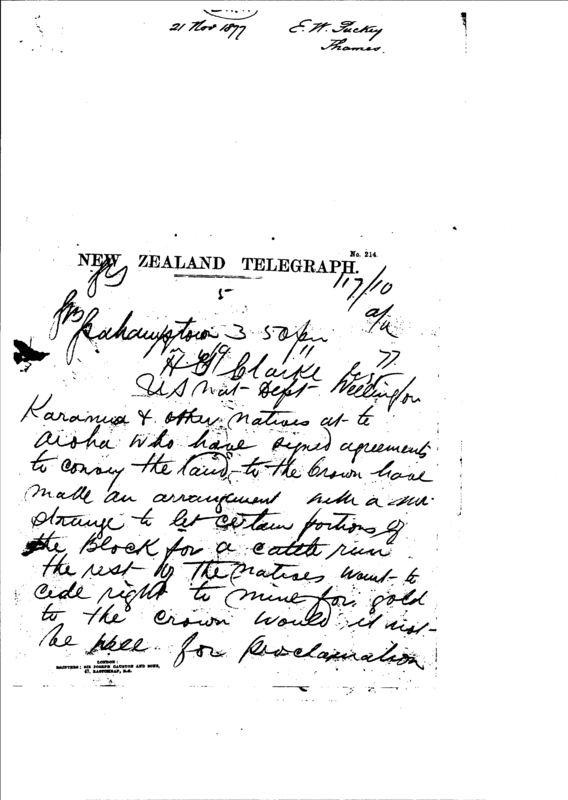 21 Nov 1877 E. W. Puckey
Thames.
No. 214.
NEW ZEALAND TELEGRAPH.
5 17/10
Grahamstown 3 50 pm
H T Clarke
US Nat Dept Wellington
77
Karauna & other natives at te
Aroha who have signed agreements
to convey the land to the Crown have
made an arrangement with a Mr
Strange to let certain portions of
the Block for a cattle run
the rest of the natives want to
cede right to mine for gold
to the crown would it not
be well for proclamation
LONDON:
PRINTERS: SIR JOSEPH CAUSTON AND SONS,
47, EASTCHEAP, E.C.